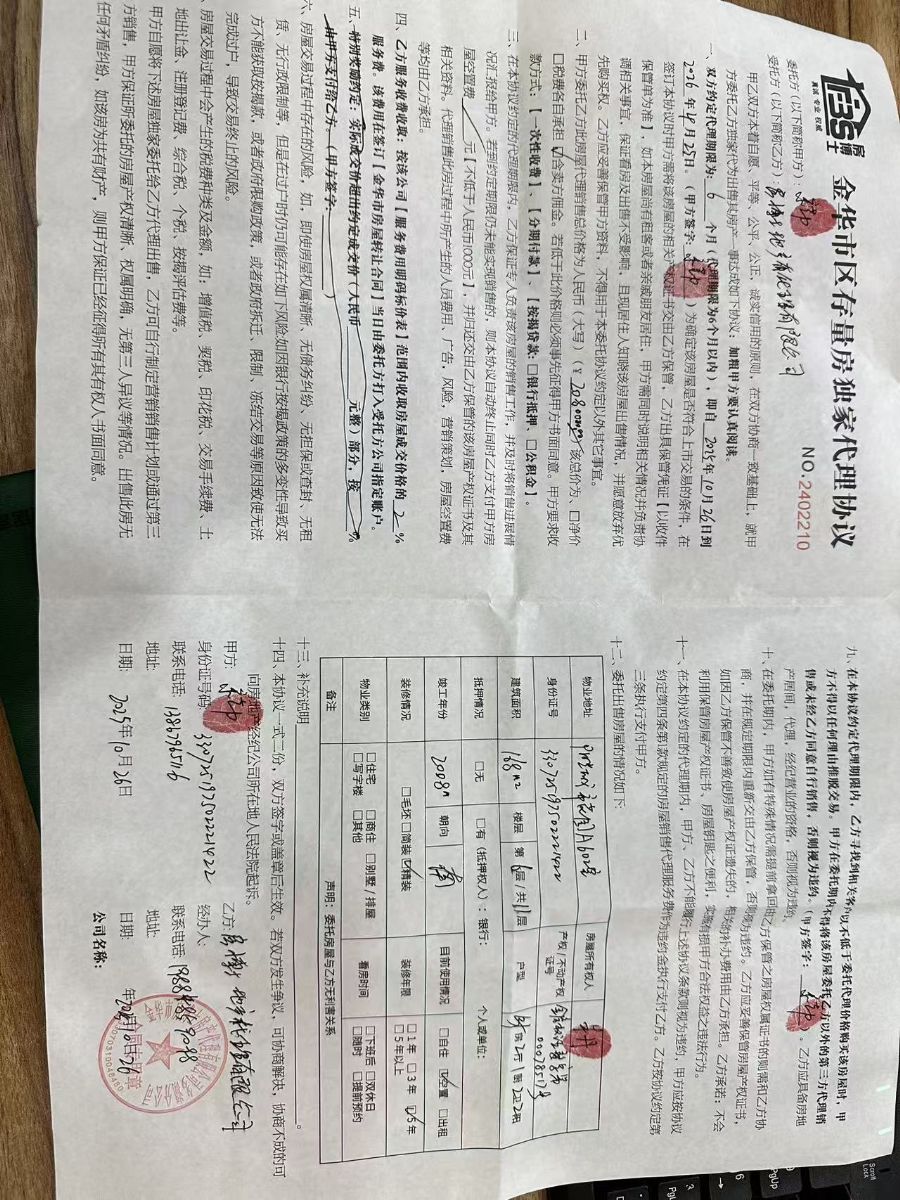 房博士
真诚 专业 权威
金华市区存量房独家代理协议
NO.2402210
委托方（以下简称甲方）：
受托方（以下简称乙方）
甲乙双方本着自愿、平等、公平、公正、诚实信用的原则，在双方协商一致基础上，就甲
方委托乙方独家代为出售其房产一事达成如下协议：加粗甲方要认真阅读。
一、双方约定代理期限为：6 个月（代理期限为6个月以内），即自 2025年10月26日到
2026年4月25日。（甲方签字： ）为确定该房屋是否符合上市交易的条件，在
签订本协议时甲方需将该房屋的相关产权证书交由乙方保管，乙方出具保管凭证【以收件
保管单为准】，如本房屋尚有租客或者亲戚朋友居住，甲方需同时说明相关情况并负责协
调相关事宜，保证看房及出售不受影响，且现居住人知晓该房屋出售情况，并愿意放弃优
先购买权。乙方应妥善保管甲方资料，不得用于本委托协议约定以外其它事宜。
二、甲方委托乙方此房屋代理销售总价格为人民币（大写）（¥ ）该总价为、□净价
□税费各自承担 ☑含卖方佣金。若低于此价格则必须事先征得甲方书面同意。甲方要求收
款方式：【一次性收费】、【分期付款】、【按揭贷款：□银行抵押、□公积金】。
三、在本协议约定的代理期限内，乙方保证专人负责该房屋的销售工作，并及时将销售进展情
况汇报给甲方。若到约定期限仍未能实现销售的，则本协议自动终止同时乙方支付甲方房
屋空置费 元【不低于人民币100元】，并归还交由乙方保管的该房屋产权证书及其
相关资料。代理销售此房过程中所产生的人员费用，广告，风险，营销策划，房屋空置费
等均由乙方承担。
四、乙方服务收费收取：按该公司【服务费用明码标价表】范围内收取房屋成交价格的 2 %
服务费。该费用在签订【金华市房屋转让合同】当日由委托方打入受托方公司指定账户。
五、特别奖励约定：实际成交价超出约定成交价（人民币 元整）部分，按 %
由甲方支付给乙方。（甲方签字： ）
六、房屋交易过程中存在的风险，如，即使房屋权属清晰、无债务纠纷、无担保或查封、无租
赁、无行政限制等，但是在过户时仍可能存在如下风险:如因银行按揭政策的多变性导致买
方不能获取按揭款，或者政府限购政策，或者政府拆迁、限制、冻结交易等原因致使无法
完成过户，导致交易终止的风险。
房屋交易过程中会产生的税费种类及金额，如：增值税、契税、印花税、交易手续费、土
地出让金、注册登记费、综合税、个税、按揭评估费等。
甲方自愿将下述房屋独家委托给乙方代理出售，乙方可自行制定营销销售计划或通过第三
方销售，甲方保证所委托的房屋产权清晰、权属明确，无第三人异议等情况。出售此房无
任何矛盾纠纷，如该房为共有财产，则甲方保证已经征得所有其有权人书面同意。
九、在本协议约定代理期限内，乙方寻找到相关客户以不低于委托代理价格购买该房屋时，甲
方不得以任何理由推脱交易。甲方在委托期内不得将该房屋委托乙方以外的第三方代理销
售或未经乙方同意自行销售，否则视为违约。（甲方签字： ）。乙方应具备房地
产居间，代理，经纪营业的资格，否则视为违约。
十、在委托期内，甲方如有特殊情况需提前拿回由乙方保管之房屋权属证书的则需和乙方协
商，并在规定期限内重新交由乙方保管，否则视为违约。乙方应妥善保管房屋产权证书，
如因乙方保管不善致使房屋产权证遗失的，相关补办费用由乙方承担。乙方承诺：不会
利用保管房屋产权证书、房屋钥匙之便利，实施有损甲方合法权益之违法行为。
十一、在本协议约定的代理期内，甲方、乙方不能履行上述协议条款则视为违约，甲方应按协议
约定第四条第1款规定的房屋销售代理服务费作为违约金执行支付乙方。乙方按协议约定第
三条执行支付甲方。
十二、委托出售房屋的情况如下：
物业地址 房屋所有权人
身份证号 330725197502221422 产权/不动产权证号
建筑面积 168m2 楼层 第 层/共11层 户型
抵押情况 □无 □有（抵押权人）：银行： 个人或单位：
竣工年份 2008年 朝向 南 目前使用情况 □自住 ☑空置 □出租
装修情况 □毛坯 □简装 ☑精装 装修年限 □1年 □3年 ☑5年 □5年以上
物业类别 □住宅 □商住 □别墅/排屋 □写字楼 □其他 看房时间 □下班后 □双休日 □随时 □提前预约
备注 声明：委托房屋与乙方无利害关系
十三、补充说明
十四、本协议一式二份，双方签字或盖章后生效。若双方发生争议，可协商解决，协商不成的可
向房地产经纪公司所在地人民法院起诉。
甲方：
身份证号码：330725197502221422
联系电话：
地址：
日期：2025年10月26日
乙方：
经办人：
联系电话：
地址：
日期：
公司名称：